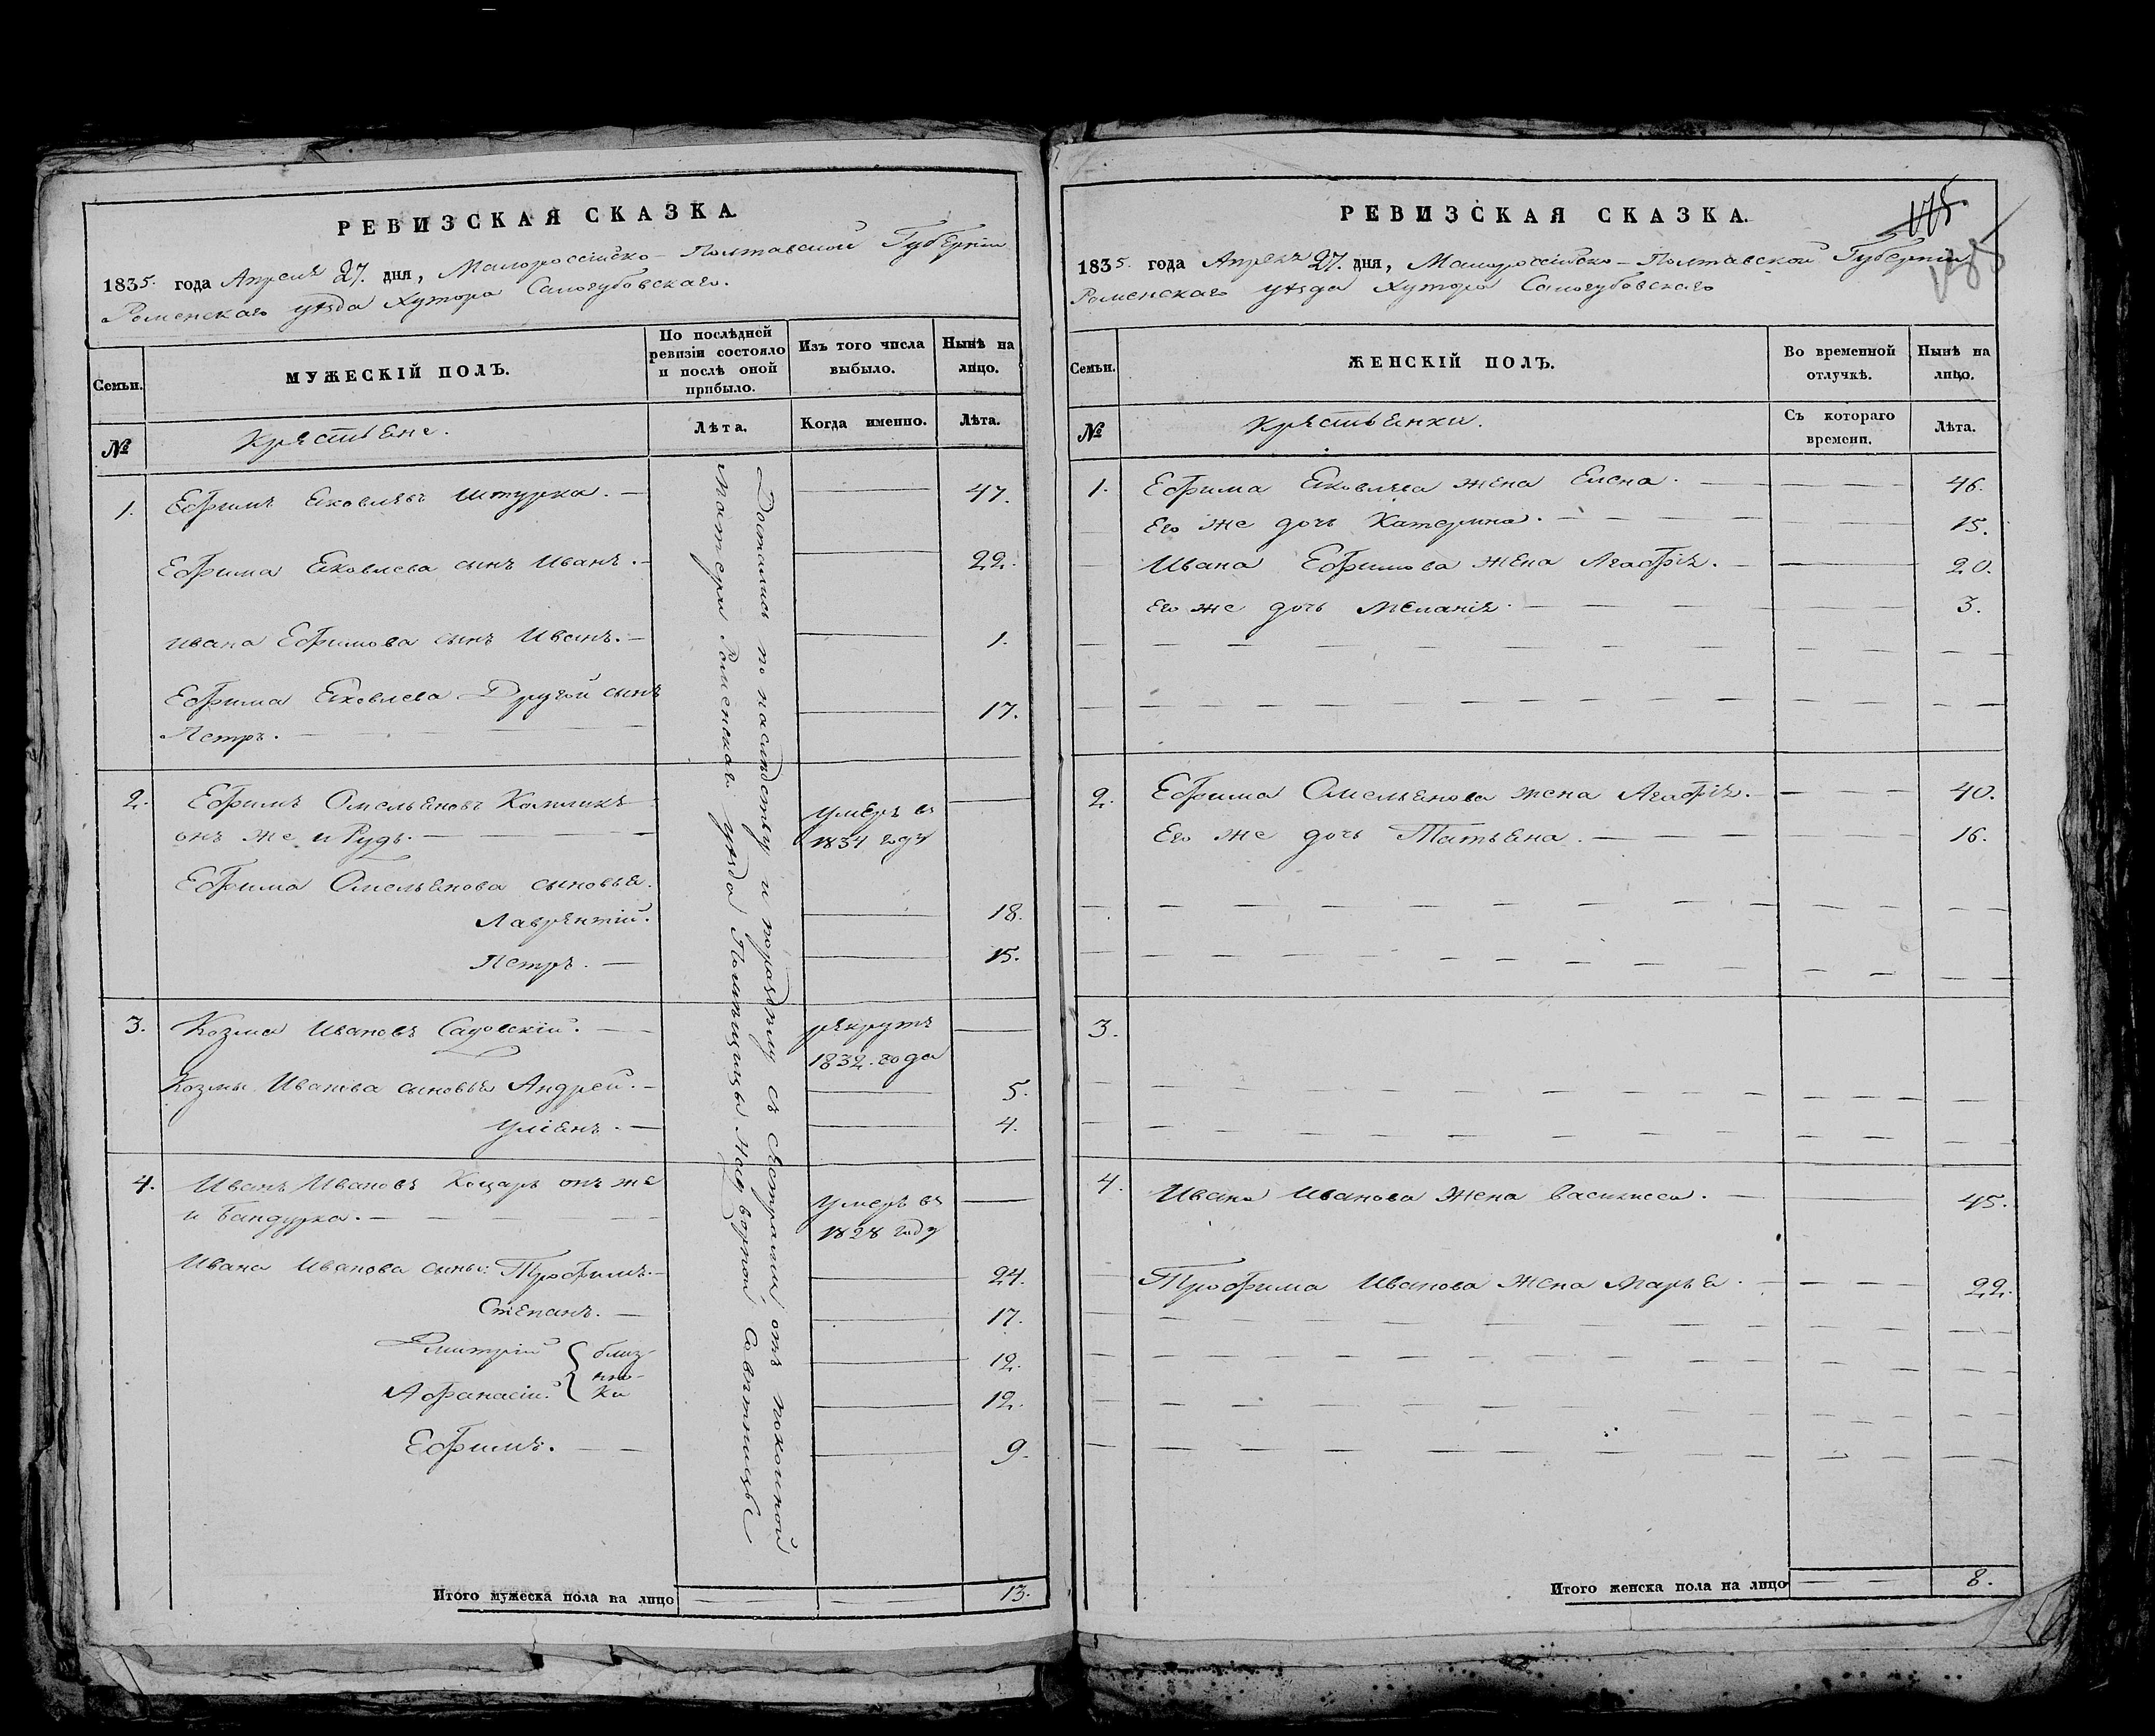 РЕВИЗСКАЯ СКАЗКА.
1835. года Апреля 27. дня, Малороссійско-Полтавской Губерніи
Роменскаго уѣзда Хутора Сапогубовскаго.
Семьи.
МУЖЕСКІЙ ПОЛЪ.
По послѣдней
ревизіи состояло
и послѣ оной
прибыло.
Изъ того числа
выбыло.
Нынѣ на
лицо.
№
Крестьяне.
Лѣта.
Когда именно.
Лѣта.
1. Ефимъ Яковлевъ Штурка. — 47.
Ефима Яковлева сынъ Иванъ. — 22.
Ивана Ефимова сынъ Иванъ. — 1.
Ефима Яковлева Другой сынъ 17.
Петръ.
2. Ефимъ Омельяновъ умеръ въ
онъ же и Рудь. 1834 году
Ефима Омельянова сыновья.
Лаврентій. 18.
Петръ. — 15.
3. Козма Ивановъ Садовскій. — рекрутъ
1832. года
Козмы Иванова сыновья Андрей. — 5.
Уліянъ. — 4.
4. Иванъ Ивановъ Коцарь онъ же умеръ въ
и Бандурка. — 1828 году
Ивана Иванова сыны: Трофимъ. — 24.
Степанъ. — 17.
Дмитрій близ- 12.
Афанасій. ки 12.
Ефимъ. 9.
Достались по наслѣдству и с отъ покойной
Матери Роменскаго уѣзда Помѣщицы
Итого мужеска пола на лицо 13.
РЕВИЗСКАЯ СКАЗКА.
1835. года Апреля 27. дня, Малороссійско-Полтавской Губерніи
Роменскаго уѣзда Хутора Сапогубовскаго
Семьи.
ЖЕНСКІЙ ПОЛЪ.
Во временной
отлучкѣ.
Нынѣ на
лицо.
№
Крестьянки.
Съ котораго
времени.
Лѣта.
1. Ефима Яковлева жена Елена. 46.
Его же дочь Катерина. 15.
Ивана Ефимова жена Агафія. 20.
Его же дочь Меланія. 3.
2. Ефима Омельянова жена Агафія. 40.
Его же дочь Татьяна. 16.
3.
4. Ивана Иванова жена Василиса. 45.
Трофима Иванова жена Марья. 22.
Итого женска пола на лицо 8.